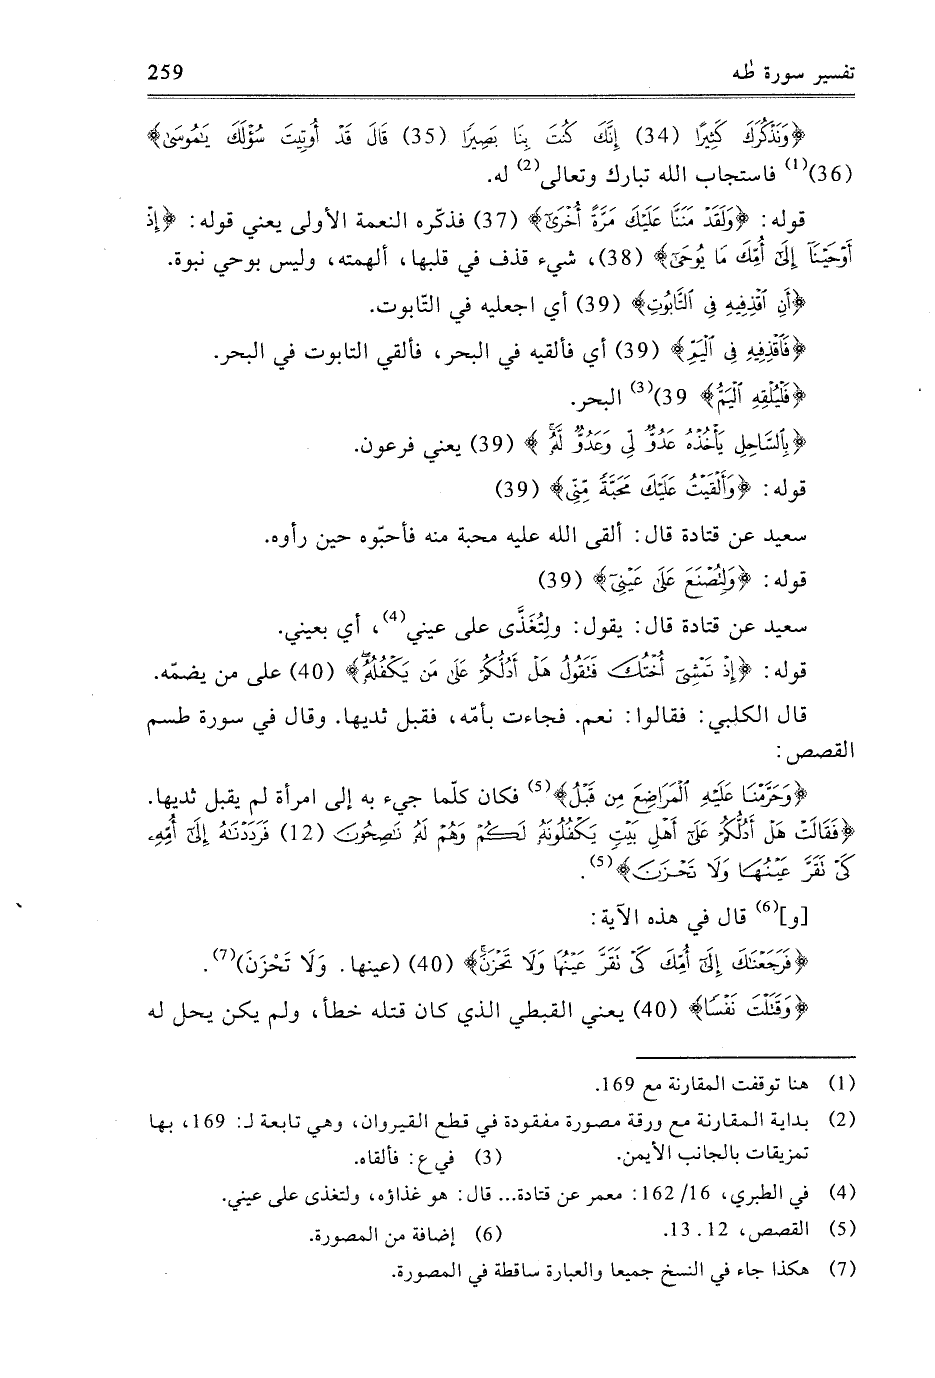 تفسير سورة طٰه 259
﴿وَنَذْكُرَكَ كَثِيرًا (34) إِنَّكَ كُنتَ بِنَا بَصِيرًا (35) قَالَ قَدْ أُوتِيتَ سُؤْلَكَ يَٰمُوسَىٰ﴾
(36)(1) فاستجاب الله تبارك وتعالى(2) له.
قوله: ﴿وَلَقَدْ مَنَنَّا عَلَيْكَ مَرَّةً أُخْرَىٰٓ﴾ (37) فذكّره النعمة الأولى يعني قوله: ﴿إِذْ
أَوْحَيْنَآ إِلَىٰٓ أُمِّكَ مَا يُوحَىٰٓ﴾ (38)، شيء قذف في قلبها، ألهمته، وليس بوحي نبوة.
﴿أَنِ ٱقْذِفِيهِ فِى ٱلتَّابُوتِ﴾ (39) أي اجعليه في التّابوت.
﴿فَٱقْذِفِيهِ فِى ٱلْيَمِّ﴾ (39) أي فألقيه في البحر، فألقي التابوت في البحر.
﴿فَلْيُلْقِهِ ٱلْيَمُّ﴾ 39)(3) البحر.
﴿بِٱلسَّاحِلِ يَأْخُذْهُ عَدُوٌّ لِّى وَعَدُوٌّ لَّهُۥۚ﴾ (39) يعني فرعون.
قوله: ﴿وَأَلْقَيْتُ عَلَيْكَ مَحَبَّةً مِّنِّى﴾ (39)
سعيد عن قتادة قال: ألقى الله عليه محبة منه فأحبّوه حين رأوه.
قوله: ﴿وَلِتُصْنَعَ عَلَىٰ عَيْنِىٓ﴾ (39)
سعيد عن قتادة قال: يقول: ولِتُغَذَّى على عيني(4)، أي بعيني.
قوله: ﴿إِذْ تَمْشِىٓ أُخْتُكَ فَتَقُولُ هَلْ أَدُلُّكُمْ عَلَىٰ مَن يَكْفُلُهُۥۖ﴾ (40) على من يضمّه.
قال الكلبي: فقالوا: نعم. فجاءت بأمّه، فقبل ثديها. وقال في سورة طسم
القصص:
﴿وَحَرَّمْنَا عَلَيْهِ ٱلْمَرَاضِعَ مِن قَبْلُ﴾(5) فكان كلّما جيء به إلى امرأة لم يقبل ثديها.
﴿فَقَالَتْ هَلْ أَدُلُّكُمْ عَلَىٰٓ أَهْلِ بَيْتٍ يَكْفُلُونَهُۥ لَكُمْ وَهُمْ لَهُۥ نَٰصِحُونَ (12) فَرَدَدْنَٰهُ إِلَىٰٓ أُمِّهِۦ
كَىْ نَقَرَّ عَيْنُهَا وَلَا تَحْزَنَ﴾(5).
[و](6) قال في هذه الآية:
﴿فَرَجَعْنَٰكَ إِلَىٰٓ أُمِّكَ كَىْ نَقَرَّ عَيْنُهَا وَلَا تَحْزَنَۚ﴾ (40) (عينها. وَلَا تَحْزَنَ)(7).
﴿وَقَتَلْتَ نَفْسًا﴾ (40) يعني القبطي الذي كان قتله خطأ، ولم يكن يحل له
(1) هنا توقفت المقارنة مع 169.
(2) بداية المقارنة مع ورقة مصورة مفقودة في قطع القيروان، وهي تابعة لـ: 169، بها
تمزيقات بالجانب الأيمن. (3) في ع: فألقاه.
(4) في الطبري، 16/ 162: معمر عن قتادة... قال: هو غذاؤه، ولتغذى على عيني.
(5) القصص، 12. 13. (6) إضافة من المصورة.
(7) هكذا جاء في النسخ جميعا والعبارة ساقطة في المصورة.